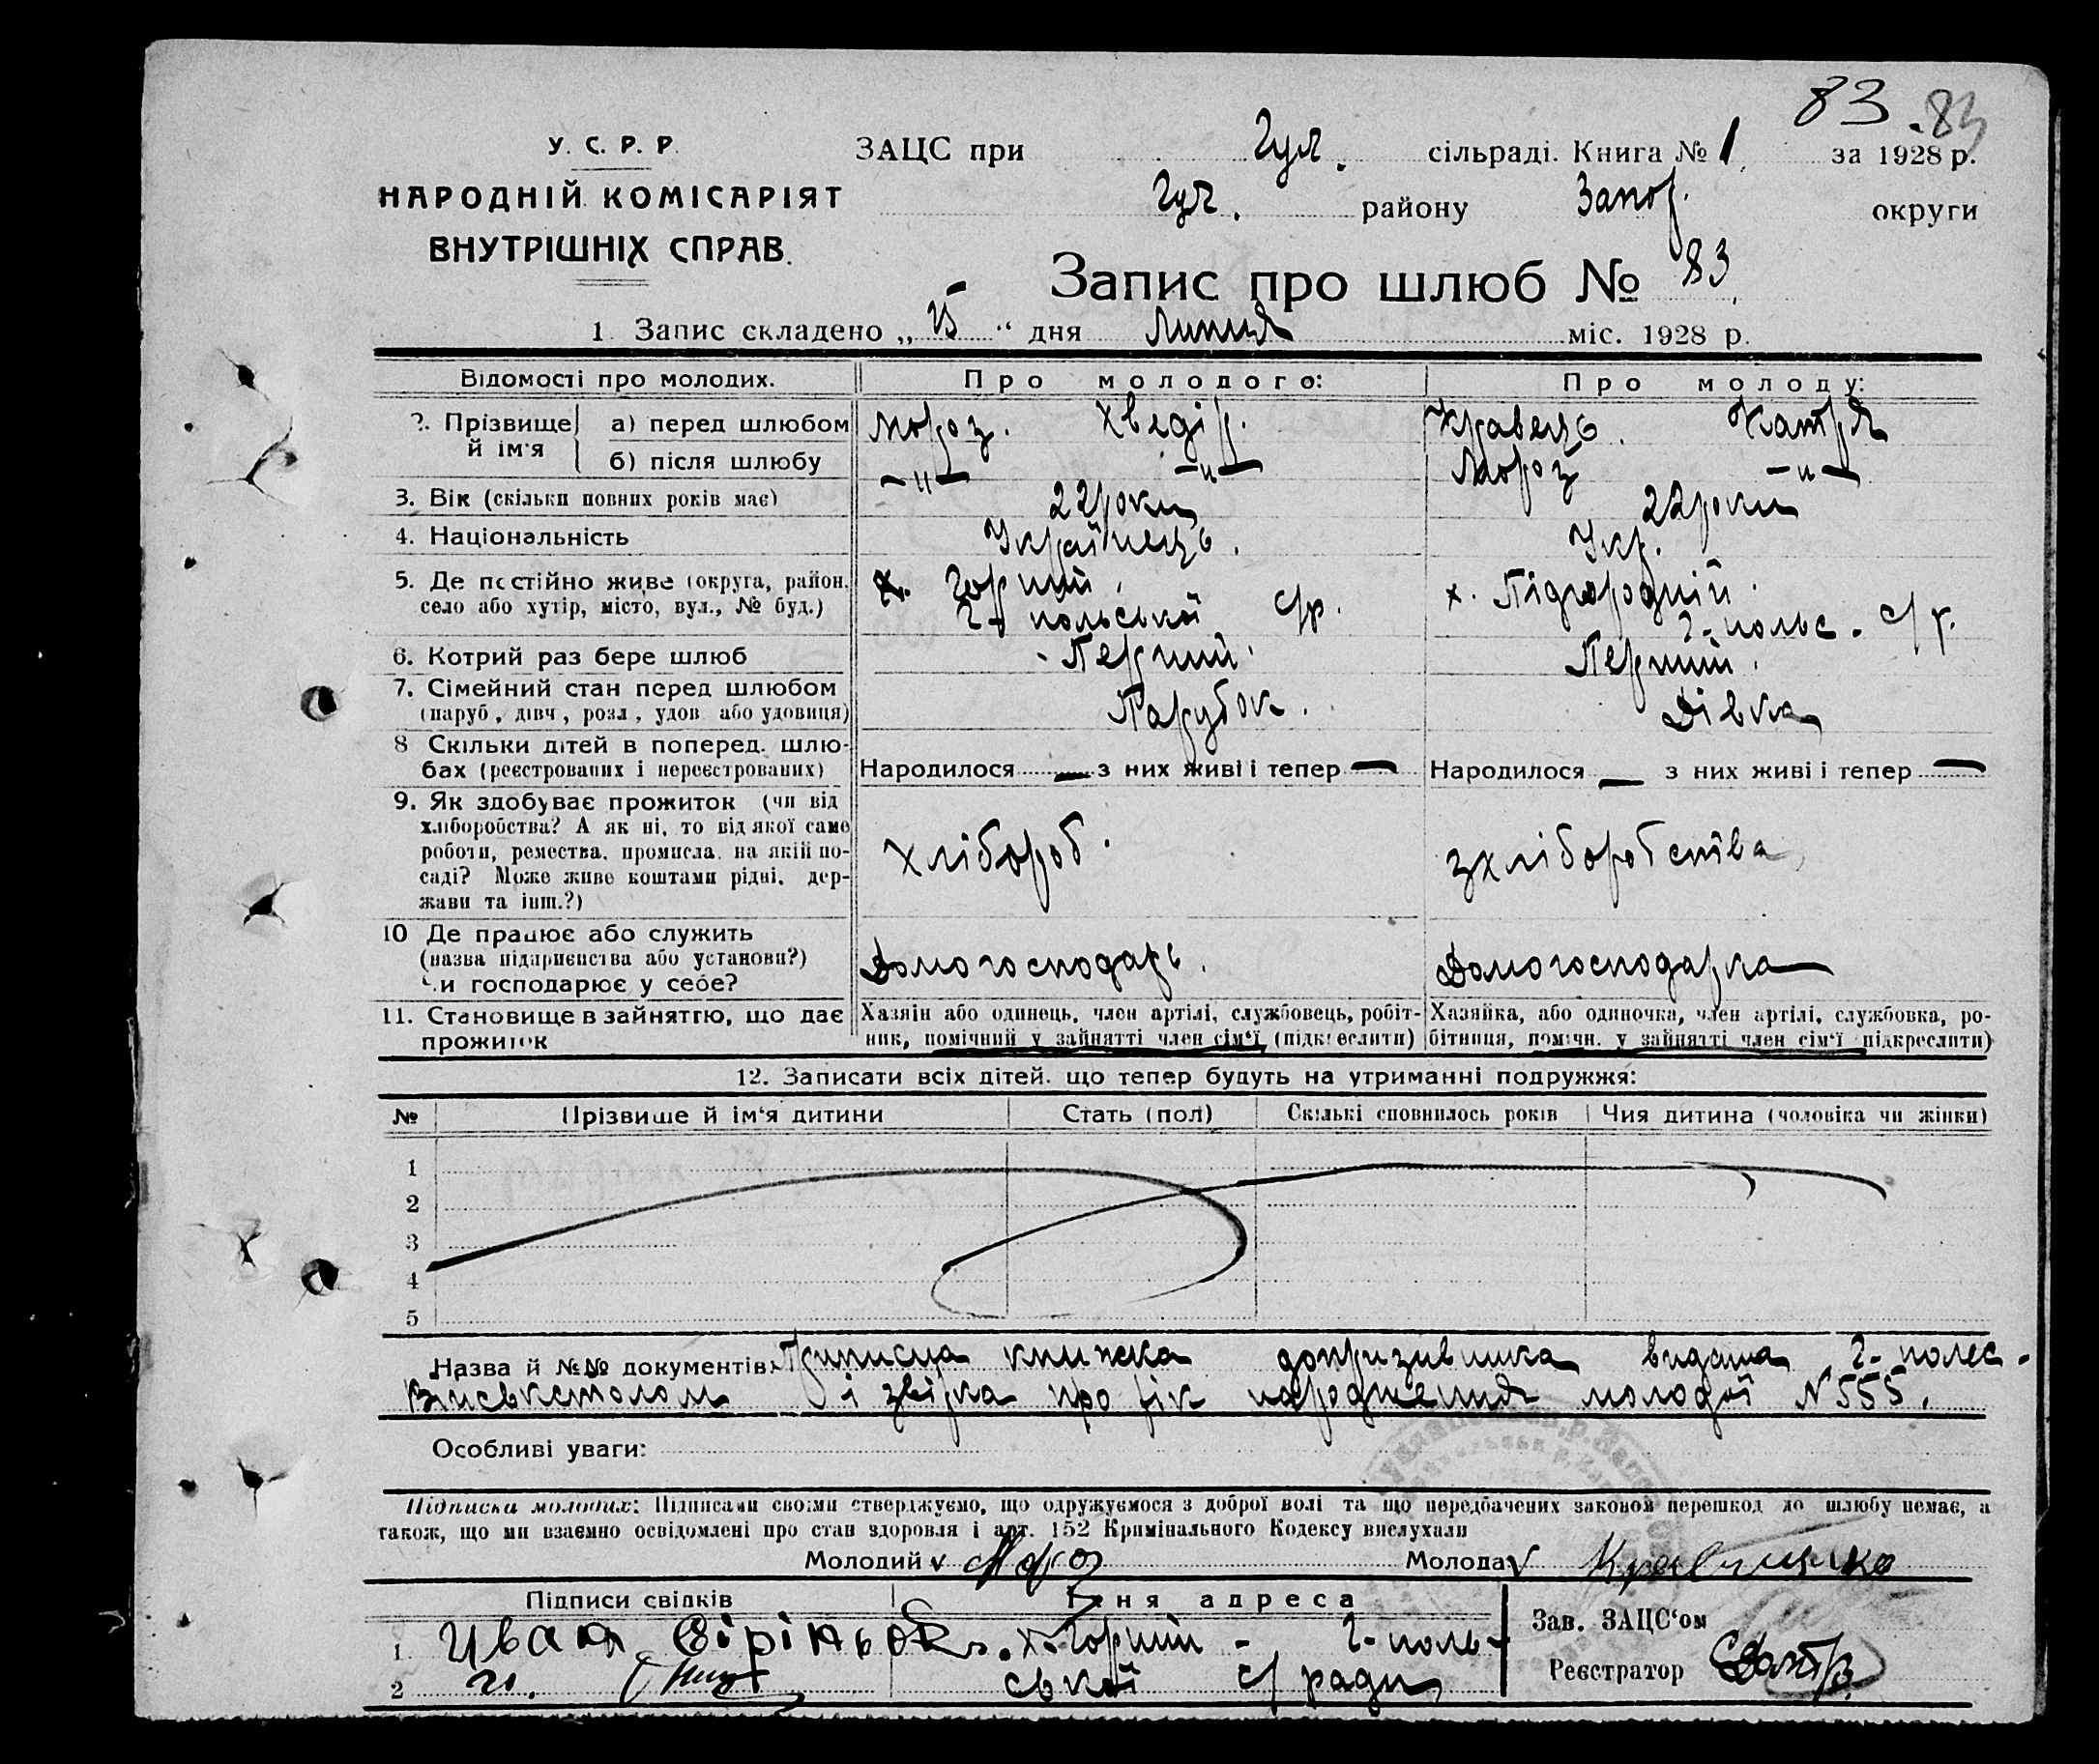 83 . 83
У. С. Р. Р.
НАРОДНІЙ КОМІСАРІЯТ
ВНУТРІШНІХ СПРАВ.
ЗАЦС при Гул. сільраді. Книга № 1 за 1928 р.
Гул. району Запор. округи
Запис про шлюб № 83
1. Запис складено „ 25 “ дня Липця міс. 1928 р.
Відомості про молодих. Про молодого: Про молоду:
2. Прізвище й ім'я а) перед шлюбом Мороз. Хведір. Кравець. Катря
б) після шлюбу —"— —"— Мороз —"—
3. Вік (скільки повних років має) 22 роки 22 роки
4. Національність Українець. Укр.
5. Де постійно живе (округа, район, х. Горький, х. Підгородній.
село або хутір, місто, вул., № буд.) Г-польської с/р. Г-польс. с/р.
6. Котрий раз бере шлюб Перший. Перший.
7. Сімейний стан перед шлюбом
(паруб., дівч., розл., удов. або удовиця) Парубок. Дівка
8 Скільки дітей в поперед. шлю-
бах (реєстрованих і нереєстрованих) Народилося — з них живі і тепер — Народилося — з них живі і тепер —
9. Як здобуває прожиток (чи від
хліборобства? А як ні, то від якої само
роботи, ремества, промисла, на якій по-
саді? Може живе коштами рідні, дер-
жави та інш.?) хлібороб. з хліборобства
10 Де працює або служить
(назва підприємства або установи?) Домогосподарь. Домогосподарка
Чи господарює у себе?
11. Становище в зайняттю, що дає Хазяін або одинець, член артілі, службовець, робіт- Хазяйка, або одиночка, член артілі, службовка, ро-
прожиток ник, помічний у зайнятті член сім'ї (підкреслити) бітниця, помічн. у зайнятті член сім'ї підкреслити)
12. Записати всіх дітей, що тепер будуть на утриманні подружжя:
№ Прізвише й ім'я дитини Стать (пол) Скількі сповнилось років Чия дитина (чоловіка чи жінки)
1
2
3
4
5
Назва й №№ документів: Приписна книжка допризивника видана Г-полес.
Військстолом і звірка про рік народження молодої № 555.
Особливі уваги:
Підписка молодих: Підписами своїми стверджуємо, що одружуємося з доброї волі та що передбачених законом перешкод до шлюбу немає, а
також, що ми взаємно освідомлені про стан здоровля і арт. 152 Кримінального Кодексу вислухали
Молодий v Мороз Молода v Кравченко
Підписи свідків Їхня адреса
1. Иван х. Горький - Г-поль-
2 ської с/ради
Зав. ЗАЦС'ом
Реєстратор